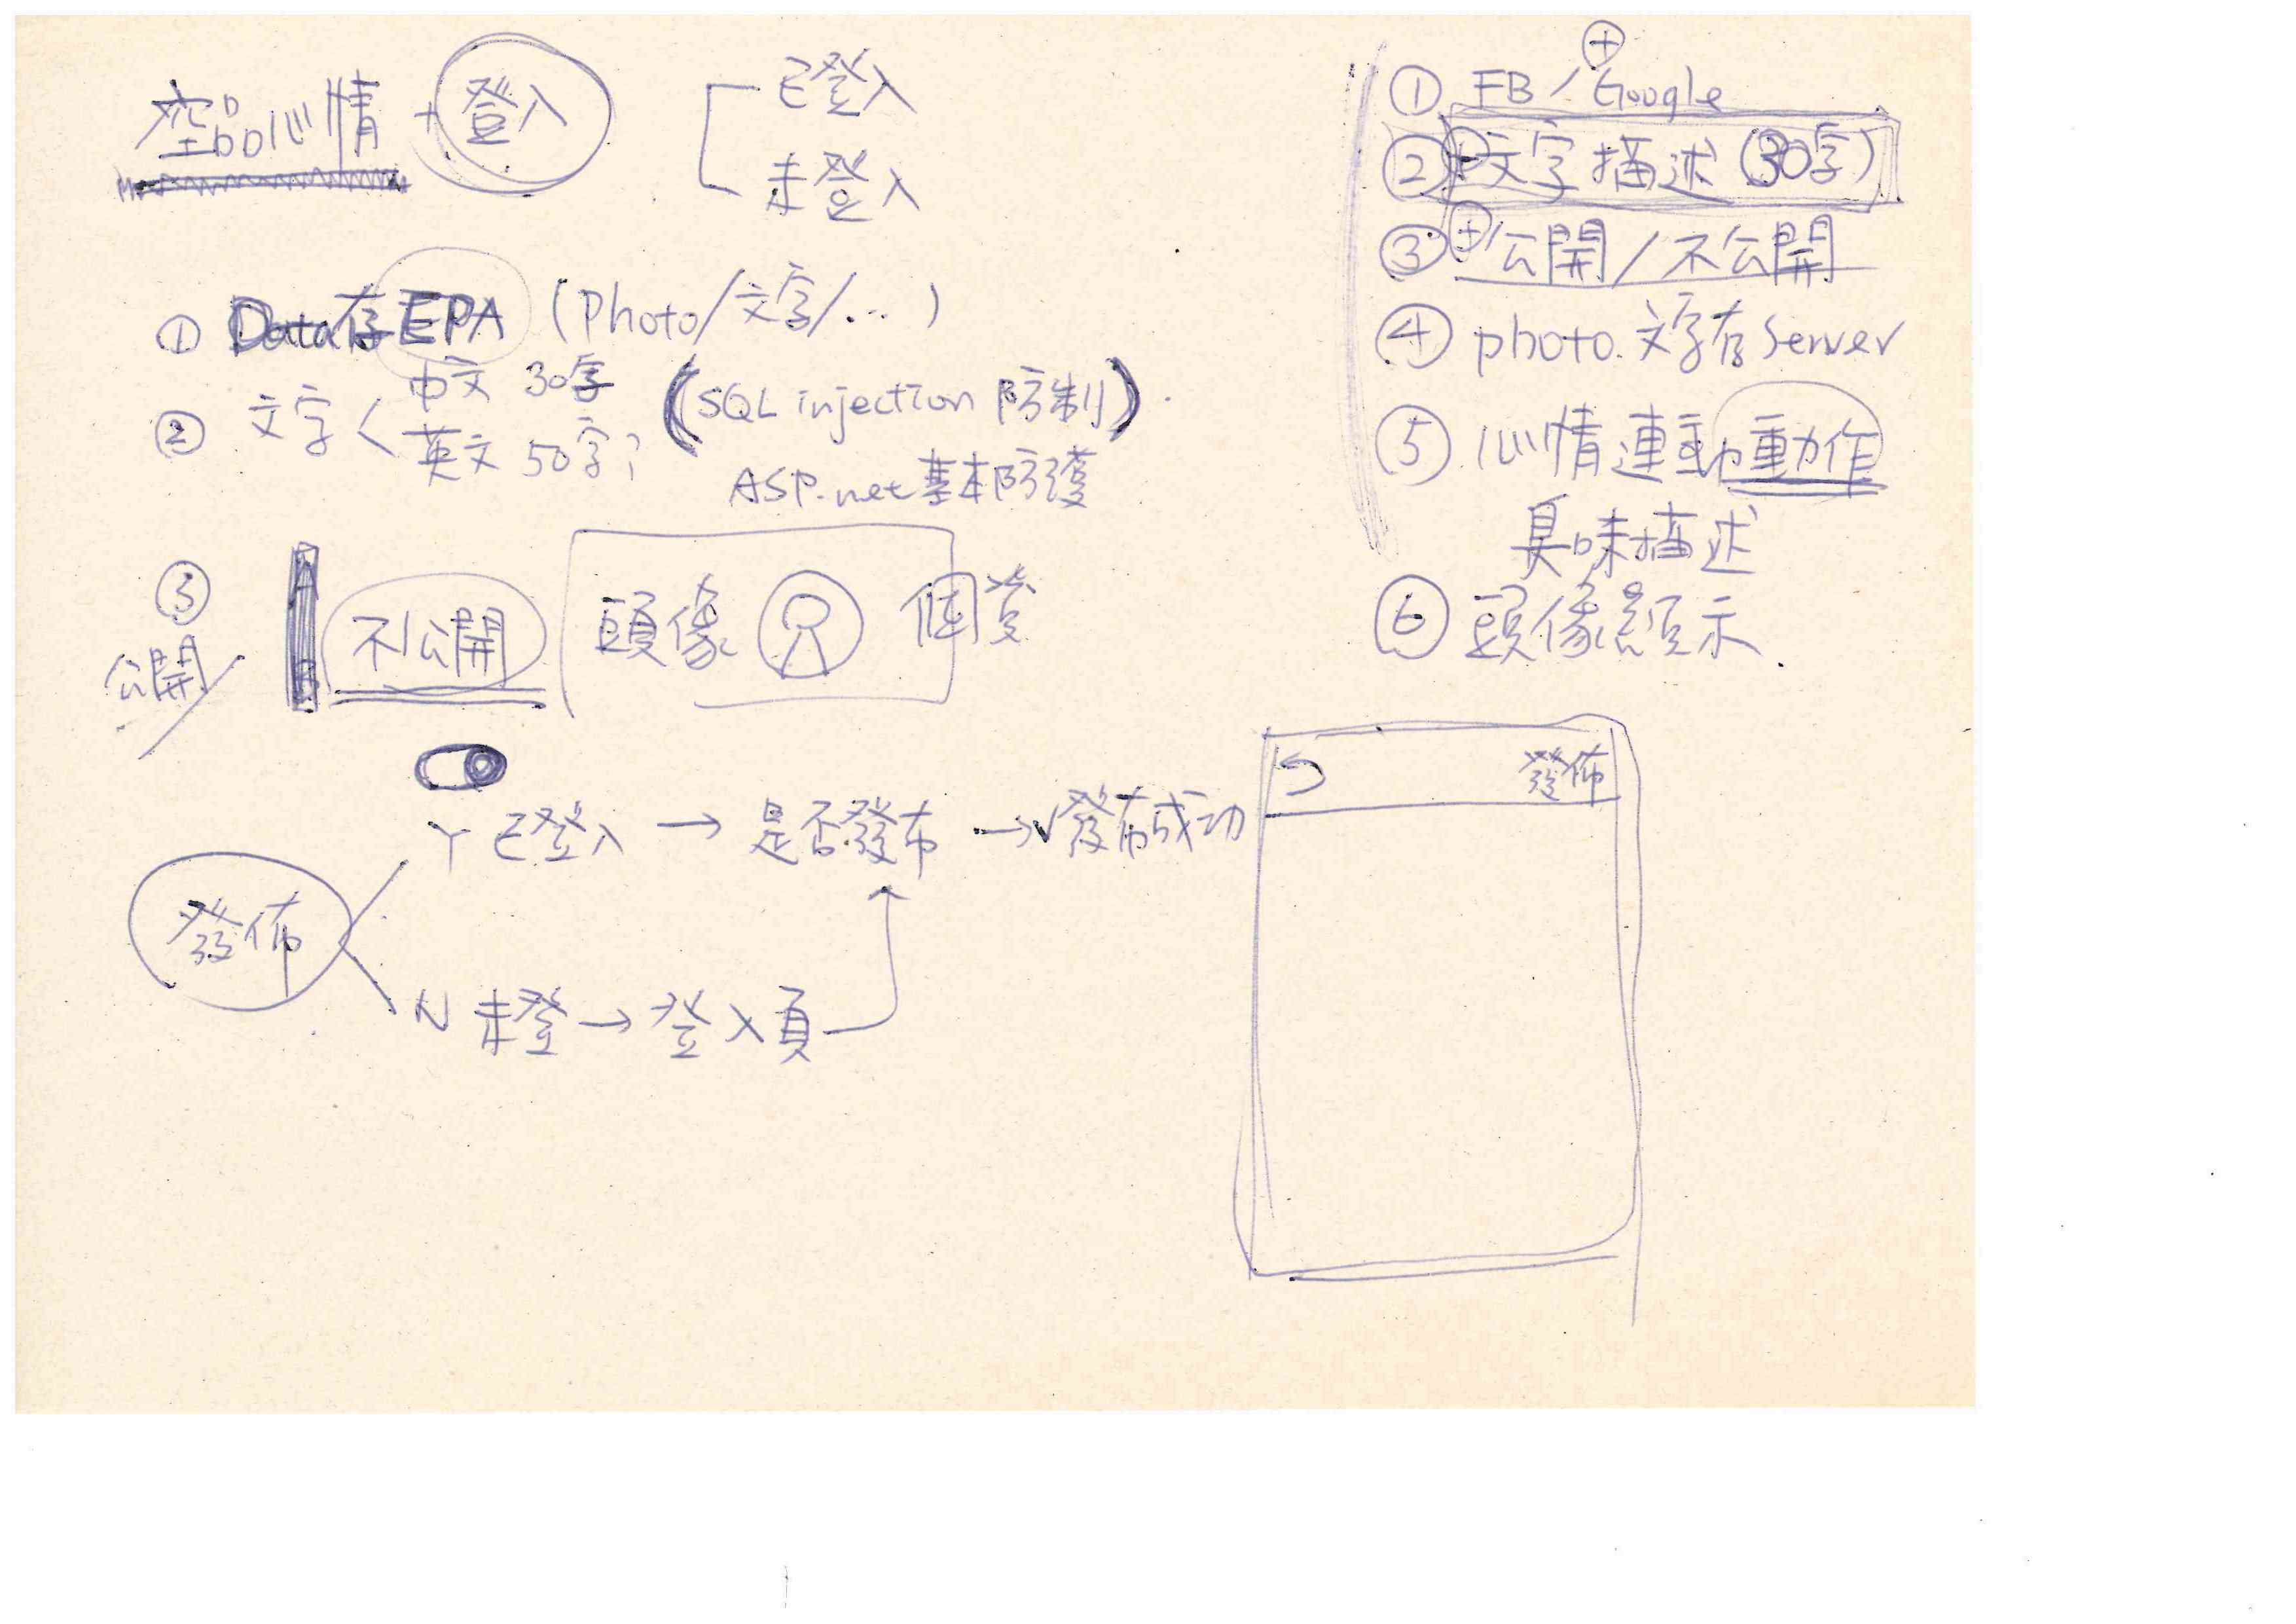 空品心情 + 登入
已登入
未登入
① Data存EPA (Photo/文字/...)
② 文字<
中文 30字
英文 50字?
(SQL injection 防制)
ASP.net基本防護
③
公開/
不公開
頭像
發佈
Y 已登入 → 是否發布 → 發布成功
N 未登 → 登入頁
① FB / Google
② 文字描述 (30字)
③ 公開/不公開
④ photo.文字存Server
⑤ 心情連動動作
臭味描述
⑥ 頭像顯示.
發佈